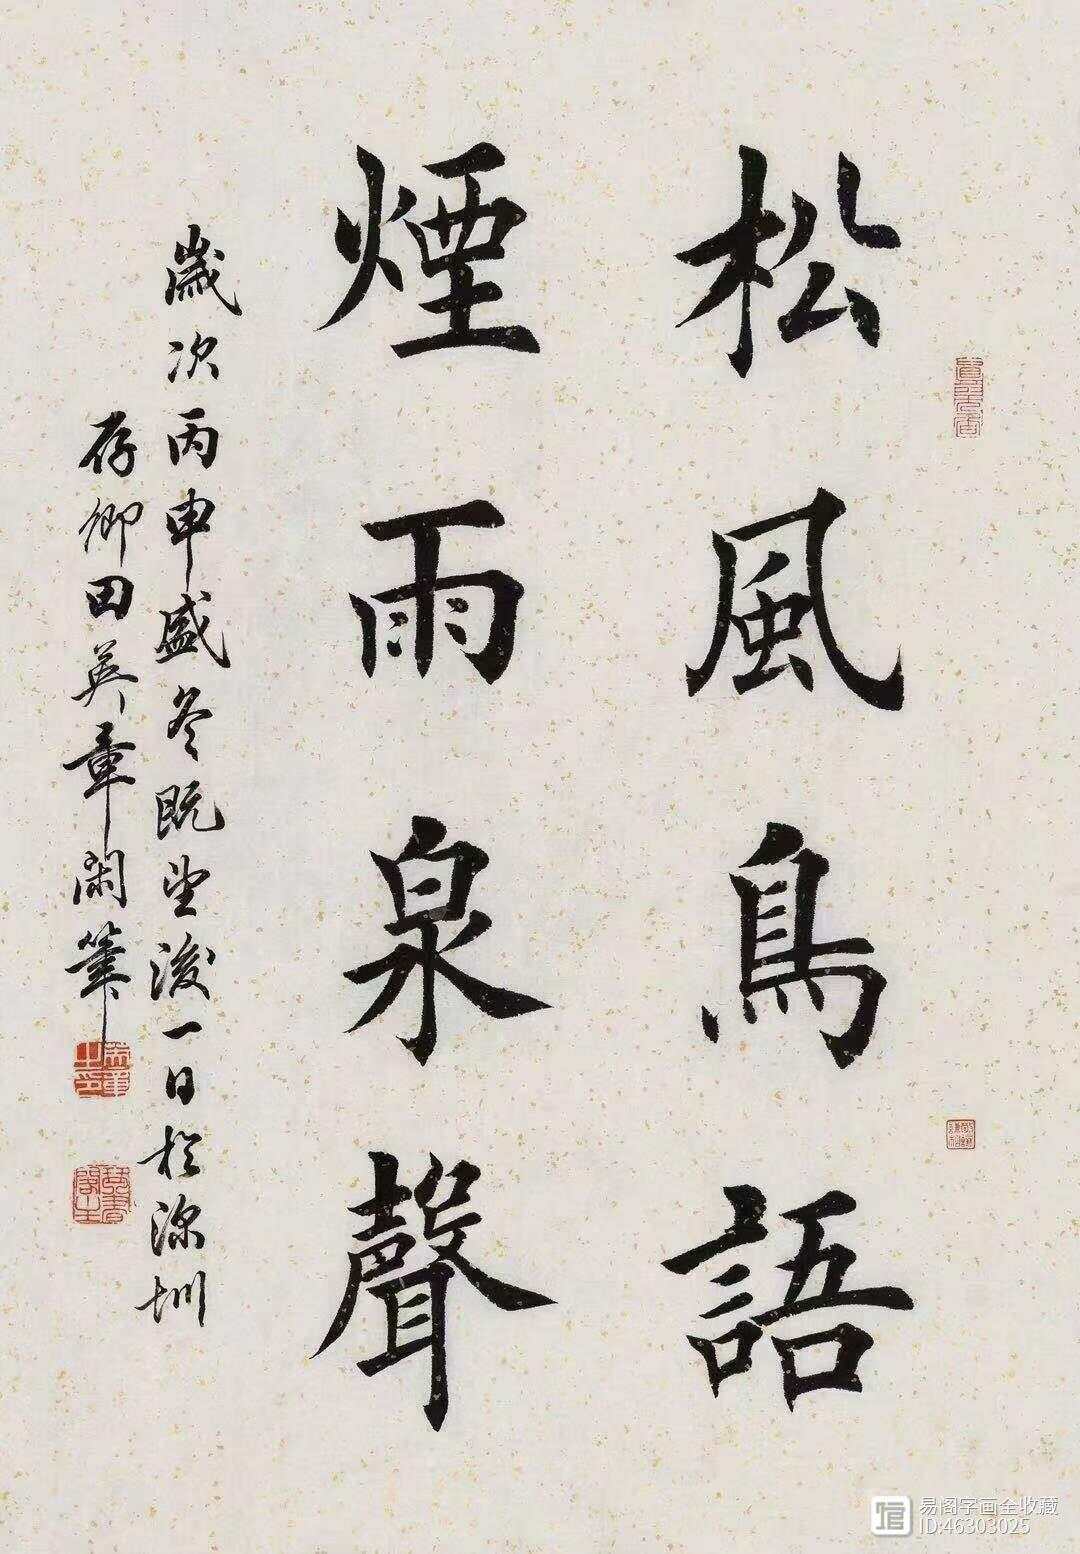 松風鳥語
煙雨泉聲
歲次丙申盛冬既望後一日於深圳
存卿田英章閑筆
易阁字画全收藏
ID:46303025